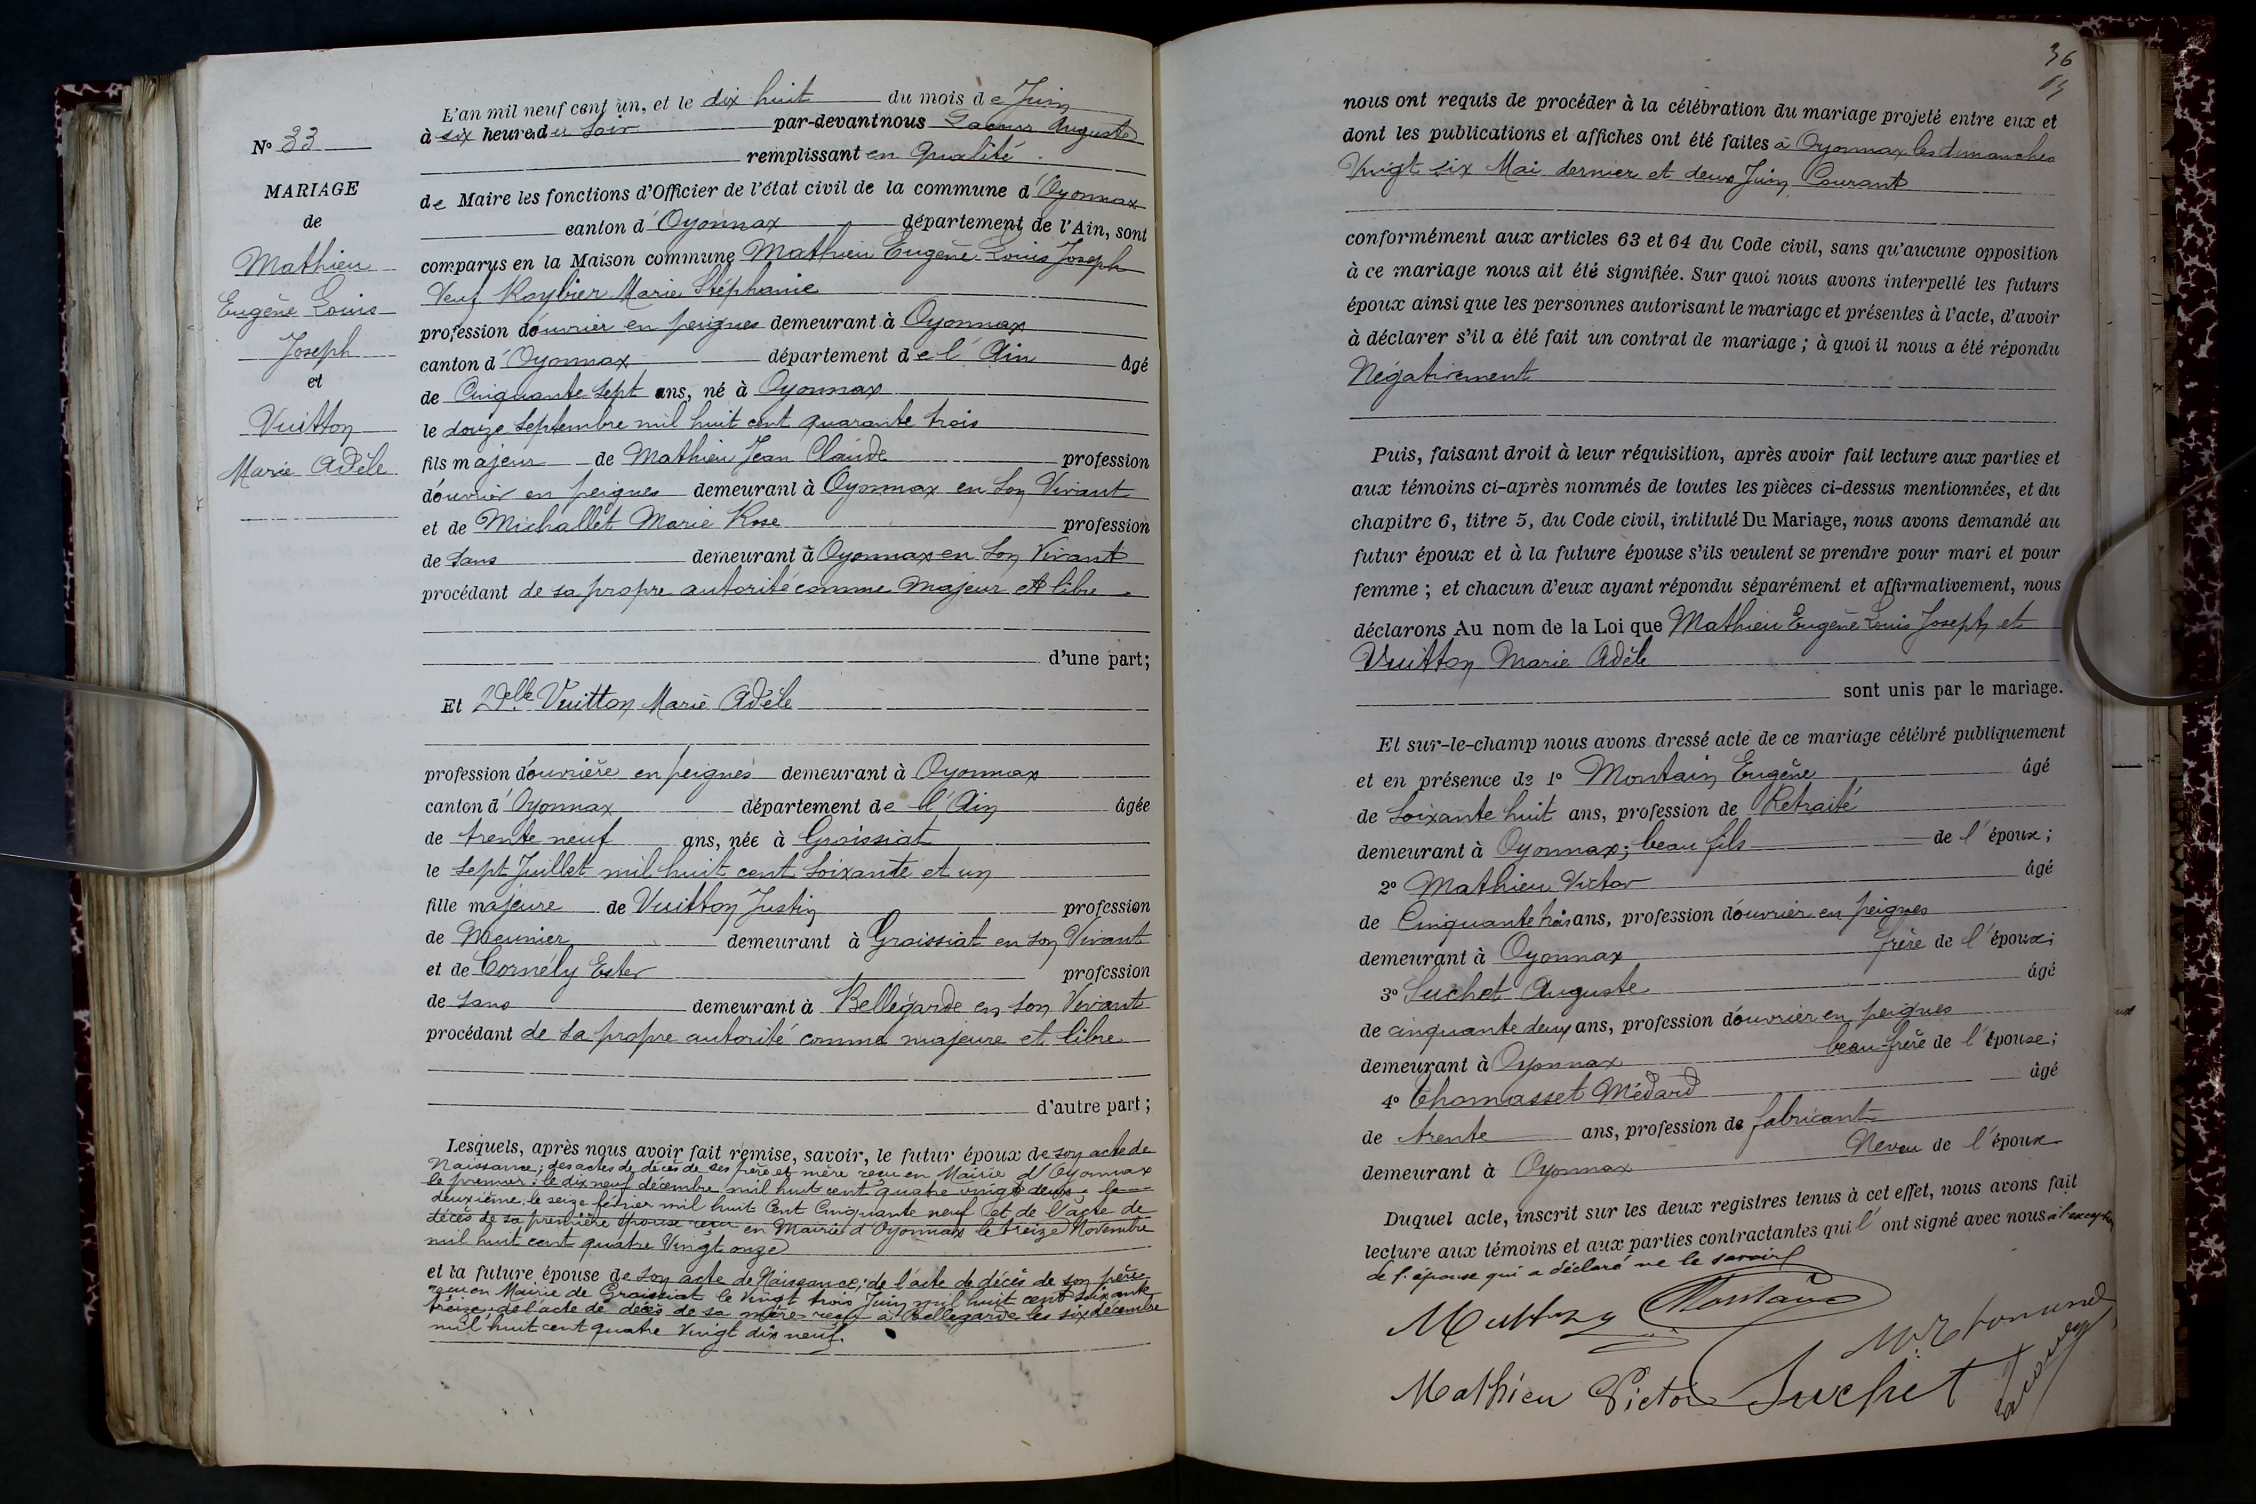 L'an mil neuf cent un, et le dix huit du mois de Juin
à six heures du Soir par-devant nous Lacour Auguste
remplissant en qualité
de Maire les fonctions d'Officier de l'état civil de la commune d'Oyonnax
canton d'Oyonnax département de l'Ain, sont
comparus en la Maison commune Mathieu Eugène Louis Joseph
Veuf Marie Stéphanie
profession d'ouvrier en peignes demeurant à Oyonnax
canton d'Oyonnax département de l'Ain âgé
de Cinquante sept ans, né à Oyonnax
le douze Septembre mil huit cent quarante trois
fils majeur de Mathieu Jean Claude profession
d'ouvrier en peignes demeurant à Oyonnax en son Vivant
et de Michallet Marie Rose profession
de Sans demeurant à Oyonnax en Son Vivant
procédant de sa propre autorité comme Majeur et libre
d'une part;
Et Delle Vuitton Marie Adèle
profession d'ouvrière en peignes demeurant à Oyonnax
canton d'Oyonnax département de l'Ain âgée
de trente neuf ans, née à Groissiat
le Sept Juillet mil huit cent soixante et un
fille majeure de Vuitton Justin profession
de Meunier demeurant à Groissiat en son Vivant
et de Cornély Ester profession
de Sans demeurant à Bellegarde en Son Vivant
procédant de sa propre autorité comme majeure et libre
d'autre part;
Lesquels, après nous avoir fait remise, savoir, le futur époux de son acte de
Naissance; des actes de décès de ses père et mère reçu en Mairie d'Oyonnax
le premier: le dix neuf décembre mil huit cent quatre vingt deux; le
deuxième, le seize février mil huit Cent Cinquante neuf et de l'acte de
décès de sa première épouse reçu en Mairie d'Oyonnax le treize Novembre
mil huit cent quatre Vingt onze
et la future épouse de Son acte de Naissance; de l'acte de décès de son père
reçu en Mairie de Groissiat le vingt trois Juin mil huit cent soixante
treize; de l'acte de décès de sa mère reçu à Bellegarde les six décembre
mil huit cent quatre Vingt dix neuf.
N° 33
MARIAGE
de
Mathieu
Eugène Louis
Joseph
et
Vuitton
Marie Adèle
36
nous ont requis de procéder à la célébration du mariage projeté entre eux et
dont les publications et affiches ont été faites à Oyonnax les dimanches
Vingt six Mai dernier et deux Juin Courant
conformément aux articles 63 et 64 du Code civil, sans qu'aucune opposition
à ce mariage nous ait été signifiée. Sur quoi nous avons interpellé les futurs
époux ainsi que les personnes autorisant le mariage et présentes à l'acte, d'avoir
à déclarer s'il a été fait un contrat de mariage; à quoi il nous a été répondu
Négativement
Puis, faisant droit à leur réquisition, après avoir fait lecture aux parties et
aux témoins ci-après nommés de toutes les pièces ci-dessus mentionnées, et du
chapitre 6, titre 5, du Code civil, intitulé Du Mariage, nous avons demandé au
futur époux et à la future épouse s'ils veulent se prendre pour mari et pour
femme; et chacun d'eux ayant répondu séparément et affirmativement, nous
déclarons Au nom de la Loi que Mathieu Eugène Louis Joseph et
Vuitton Marie Adèle
sont unis par le mariage.
Et sur-le-champ nous avons dressé acte de ce mariage célébré publiquement
et en présence de 1° Montain Eugène âgé
de Soixante huit ans, profession de Retraité
demeurant à Oyonnax; beau fils de l'époux;
2° Mathieu Victor âgé
de Cinquante trois ans, profession d'ouvrier en peignes
demeurant à Oyonnax frère de l'époux;
3° Suchet Auguste âgé
de cinquante deux ans, profession d'ouvrier en peignes
demeurant à Oyonnax beau-frère de l'épouse;
4° Thomasset Médard âgé
de trente ans, profession de fabricant
demeurant à Oyonnax Neveu de l'époux
Duquel acte, inscrit sur les deux registres tenus à cet effet, nous avons fait
lecture aux témoins et aux parties contractantes qui l'ont signé avec nous à l'exception
de l'épouse qui a déclaré ne le savoir
Montain
Mathieu Victor Suchet